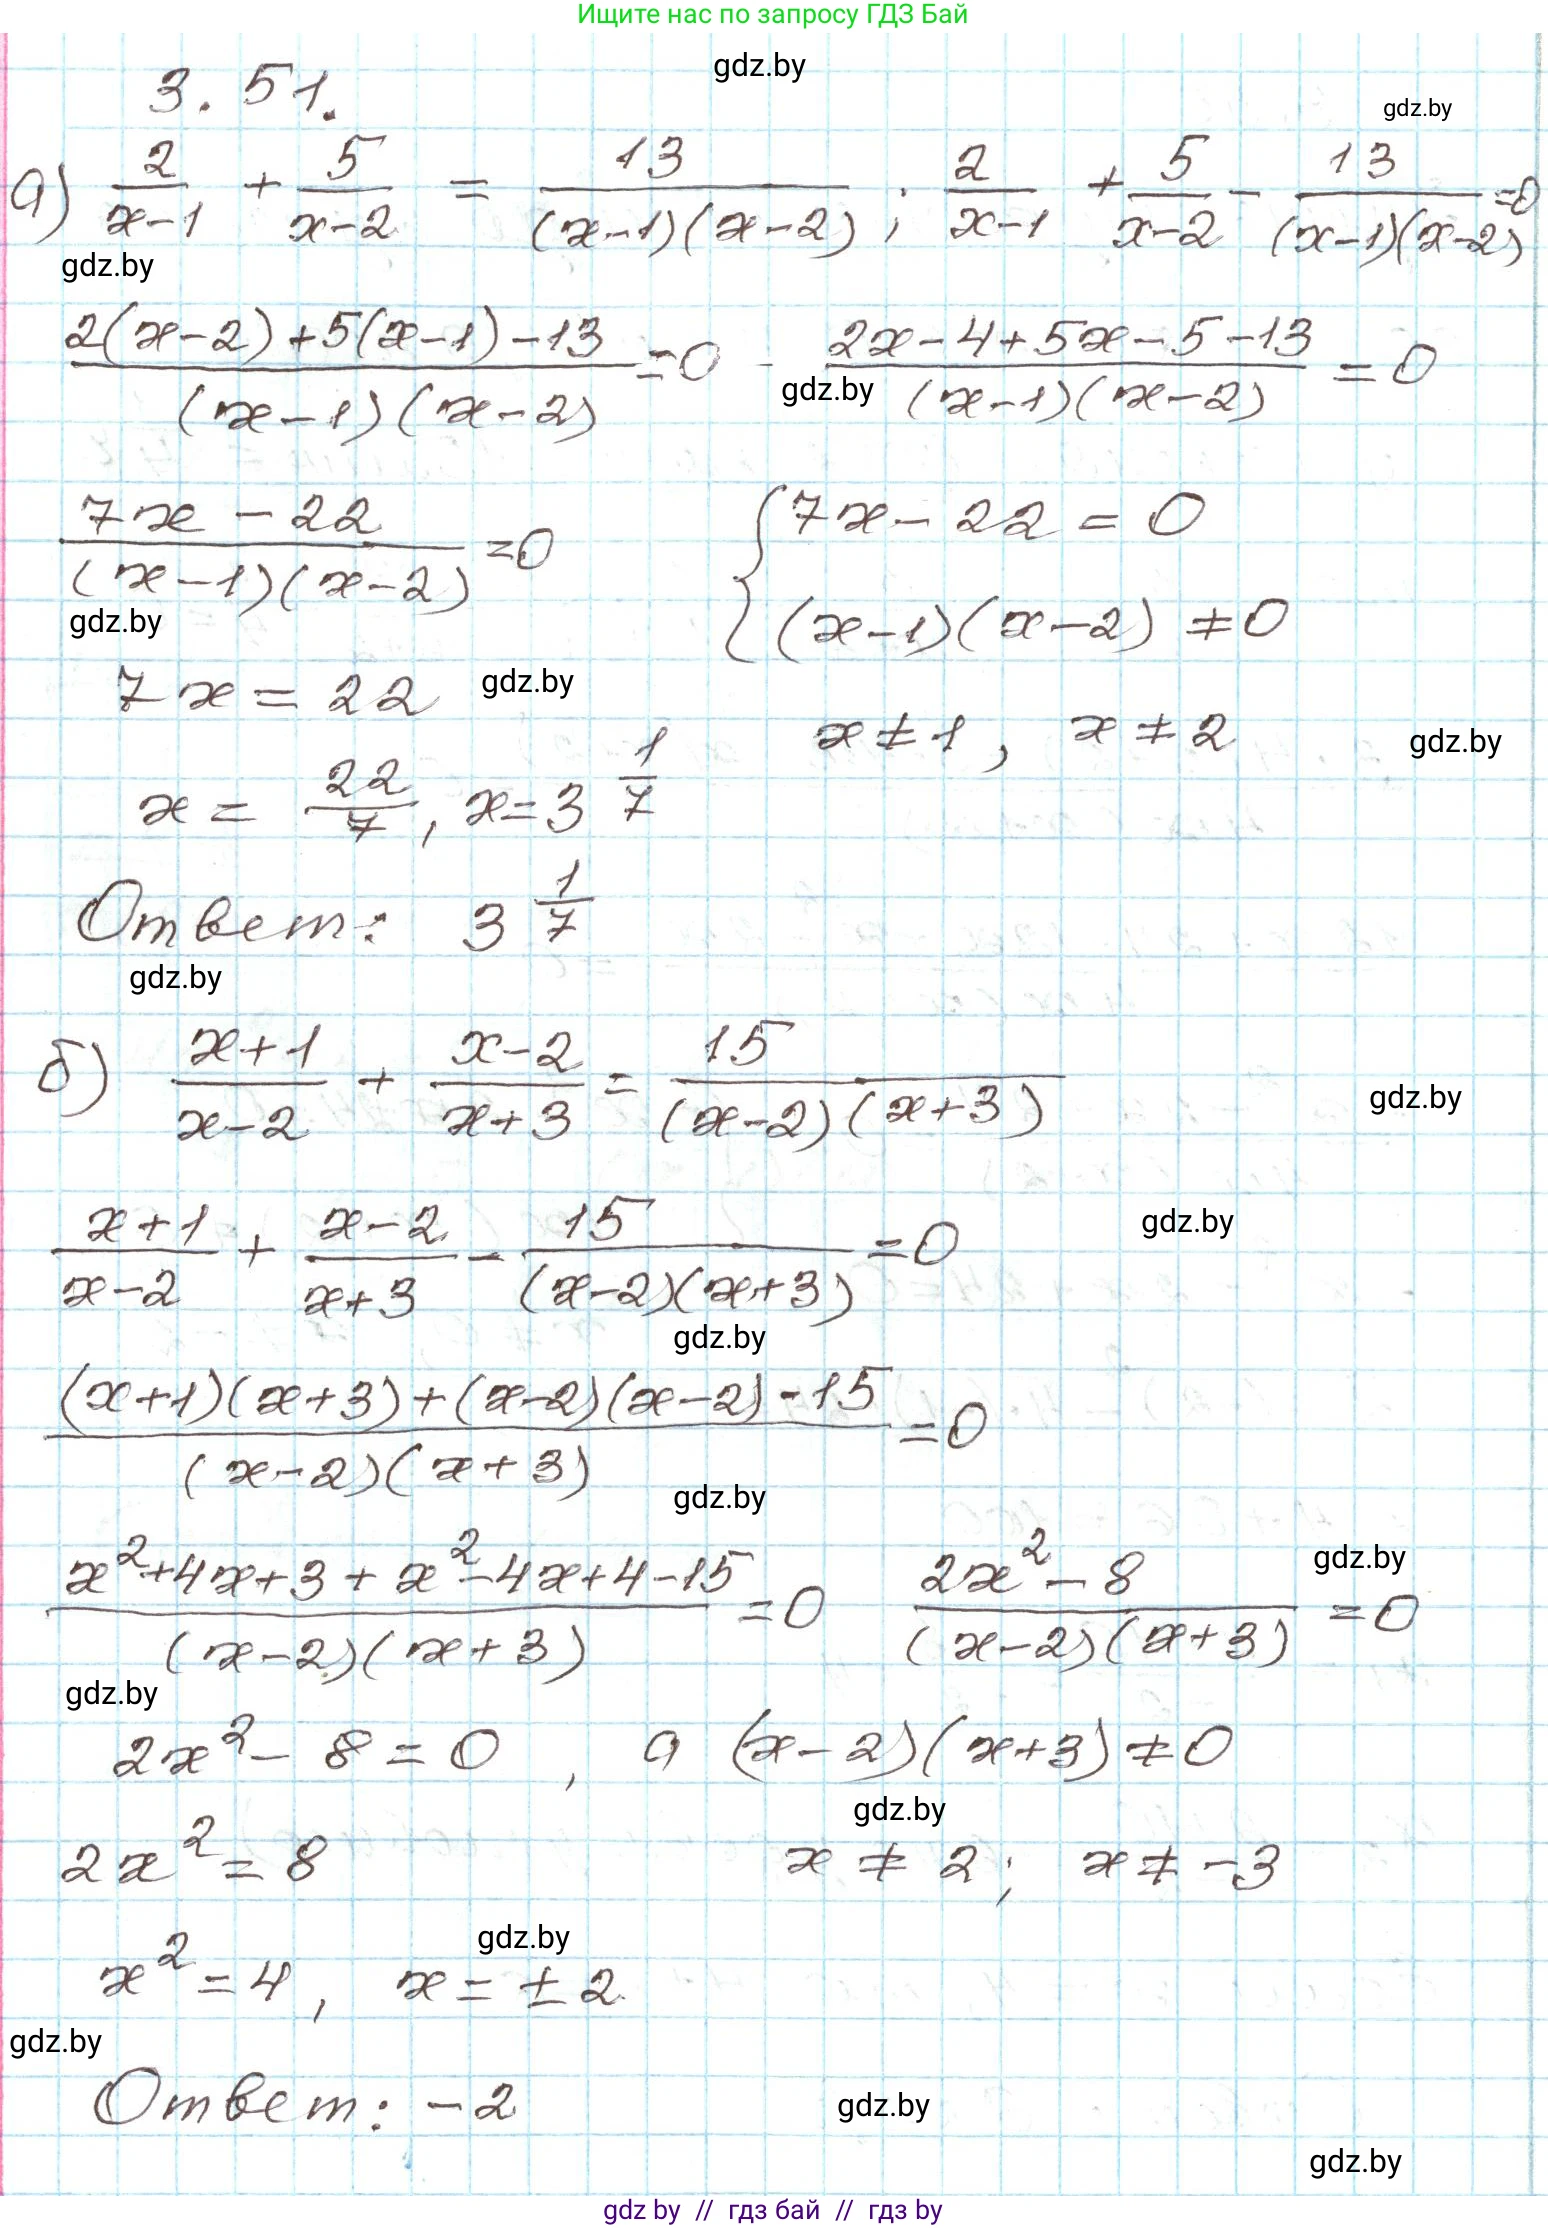 Ищите нас по запросу ГДЗ Бай
gdz.by
3.51.
gdz.by
а) 2/(x-1) + 5/(x-2) = 13/((x-1)(x-2)) ; 2/(x-1) + 5/(x-2) - 13/((x-1)(x-2)) =0
gdz.by
(2(x-2)+5(x-1)-13)/((x-1)(x-2)) =0 - (2x-4+5x-5-13)/((x-1)(x-2)) = 0
gdz.by
(7x-22)/((x-1)(x-2)) =0 { 7x-22=0
(x-1)(x-2) ≠0
gdz.by
7x=22 gdz.by
x≠1, x≠2 gdz.by
x= 22/7, x=3 1/7
Ответ: 3 1/7
gdz.by
б) (x+1)/(x-2) + (x-2)/(x+3) = 15/((x-2)(x+3))
gdz.by
(x+1)/(x-2) + (x-2)/(x+3) - 15/((x-2)(x+3)) =0 gdz.by
gdz.by
((x+1)(x+3)+(x-2)(x-2)-15)/((x-2)(x+3)) =0
gdz.by
(x²+4x+3+x²-4x+4-15)/((x-2)(x+3)) =0 (2x²-8)/((x-2)(x+3)) =0 gdz.by
gdz.by
2x²-8=0, а (x-2)(x+3)≠0
gdz.by
2x²=8 x≠2; x≠-3
gdz.by
x²=4, x=±2
gdz.by
Ответ: -2 gdz.by
gdz.by
gdz by // гдз бай // гдз by